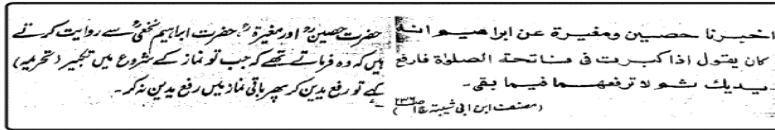 اخبرنا حصين ومغيرة عن ابراهيم انه
كان يقول اذا كبرت فى فاتحة الصلوٰة فارفع
يديك ثم لا ترفعهما فيما بقى۔
(مصنف ابن ابی شیبۃ ج۱ ص۲۳۶)
حضرت حصینؒ اور مغیرہؒ، حضرت ابراہیم نخعیؒ سے روایت کرتے
ہیں کہ وہ فرماتے تھے کہ جب تو نماز کے شروع میں تکبیر (تحریمہ)
کہے تو رفع یدین کر پھر باقی نماز میں رفع یدین نہ کر۔